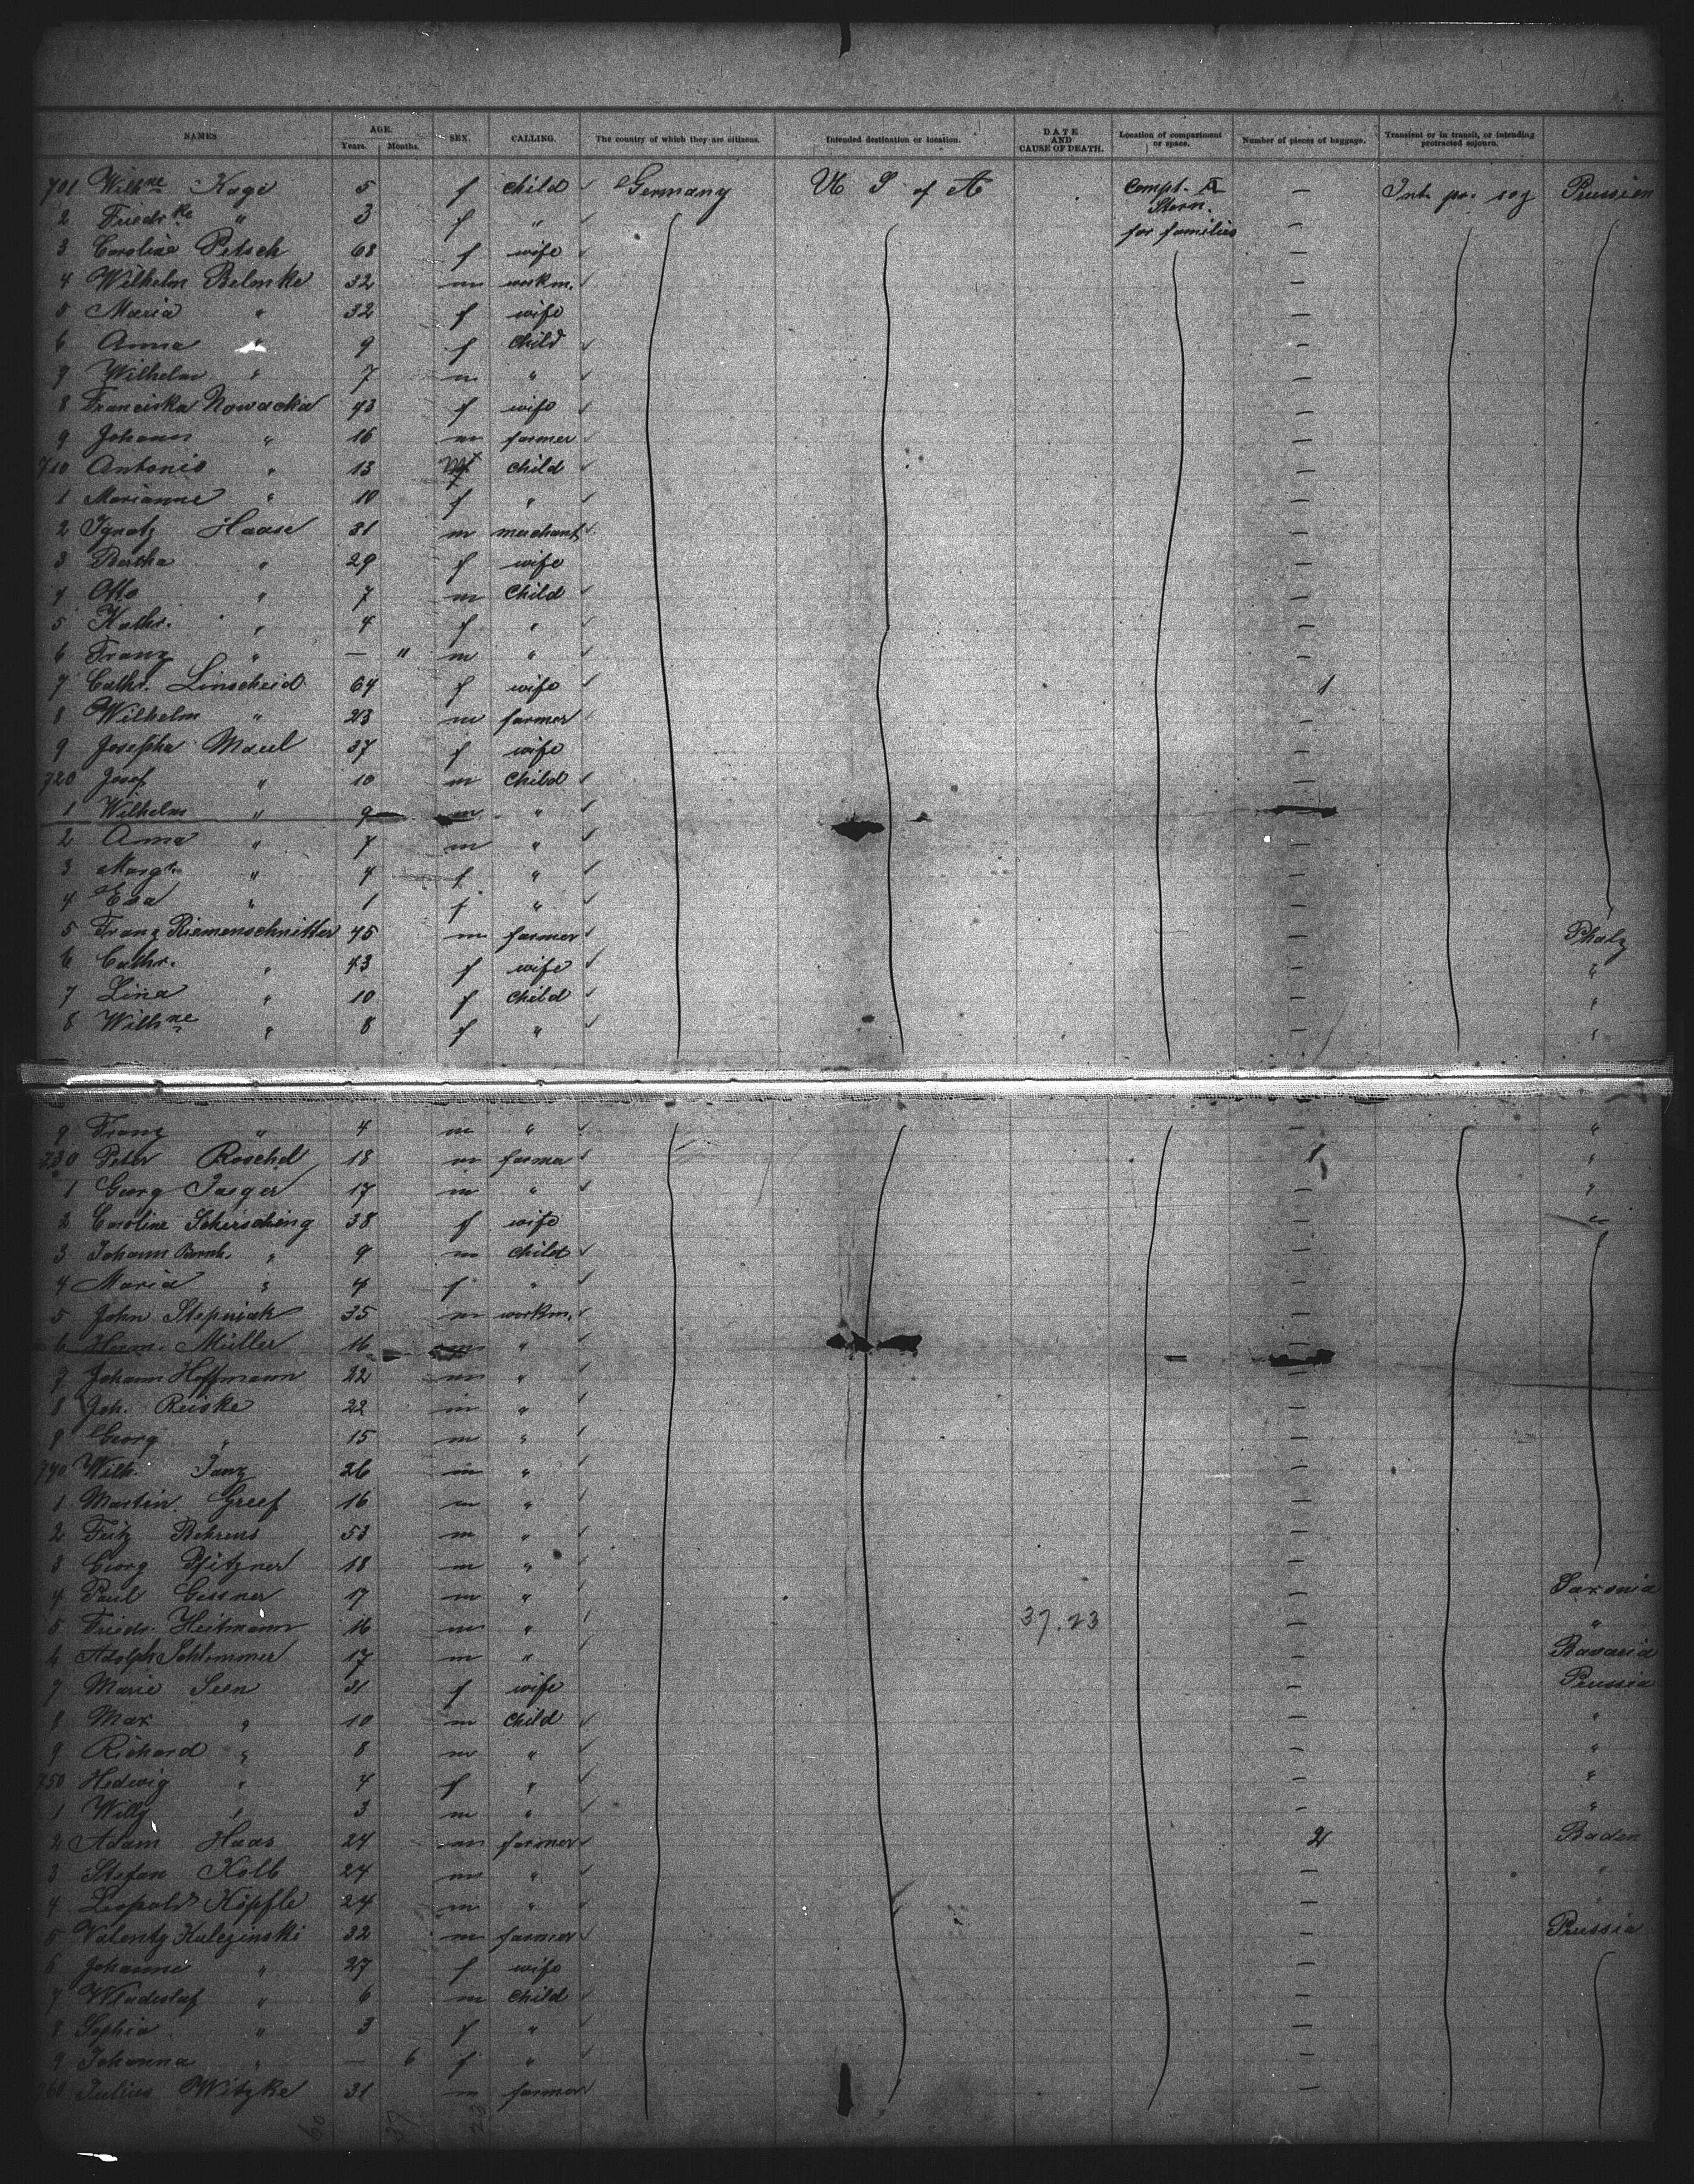 NAMES AGE. Years. Months. SEX. CALLING. The country of which they are citizens. Intended destination or location. DATE AND CAUSE OF DEATH. Location of compartment or space. Number of pieces of baggage. Transient or in transit, or intending protracted sojourn.
701 Wilhne Kage 5 f child Germany U S of A Compt. Stern. for families — Int. pr. soj Prussien
2 Friedrke " 3 f " —
3 Caroline Petsch 68 f wife —
4 Wilhelm Belmke 32 m workm. —
5 Maria " 32 f wife —
6 Anna " 9 f Child —
7 Wilhelm " 7 m " —
8 Franciska Nowacka 43 f wife —
9 Johann " 16 m farmer —
710 Antonie " 13 child —
1 Marianne " 10 f " —
2 Ignatz Haase 31 m merchant —
3 Bertha " 29 f wife —
4 Otto " 7 m Child —
5 Kathr. " 4 f " —
6 Franz " — " m " —
7 Cathr. Linscheid 64 f wife 1
8 Wilhelm " 23 m farmer —
9 Josepha Maul 37 f wife —
720 Josef " 10 m Child —
1 Wilhelm " 9 m "
2 Anna " 7 m " —
3 Margt. " 4 f " —
4 Eva " 1 f " —
5 Franz Riemenschnitter 45 m farmer — Phalz
6 Cathr. " 43 f wife — "
7 Lina " 10 f Child — "
8 Wilhne " 8 f " — "
9 Franz " 4 m " — "
730 Peter Roschel 18 m farmer 1 "
1 Georg Jaeger 17 m " — "
2 Caroline Schirsching 38 f wife — "
3 Johann Bernh. " 9 m child —
4 Maria " 4 f " —
5 John Stepniak 35 m workm. —
6 Herm. Müller 16 m "
7 Johann Hoffmann 22 m " —
8 Joh. Reiske 22 m " —
9 Georg " 15 m " —
740 Wilh. Janz 26 m " —
1 Martin Greef 16 m " —
2 Fritz Behrens 53 m " —
3 Georg Pfitzner 18 m " —
4 Paul Gessner 17 m " — Saxonia
5 Friedr. Heitmann 16 m " 37.23 — "
6 Adolph Schlimmer 17 m " — Bavaria
7 Marie Seen 31 f wife — Prussia
8 Max " 10 m Child — "
9 Richard " 8 m " — "
750 Hedwig " 4 f " — "
1 Willy " 3 m " — "
2 Adam Haas 24 m farmer 2 Baden
3 Stefan Kolb 24 m " — "
4 Leopold Köpfle 24 m " — "
5 Valentz Kulezinski 32 m farmer — Prussia
6 Johanne " 27 f wife —
7 Wladislaf " 6 m Child —
8 Sophia " 3 f " —
9 Johanna " — 6 f " —
760 Julius Witzke 31 m farmer —
60 37 23